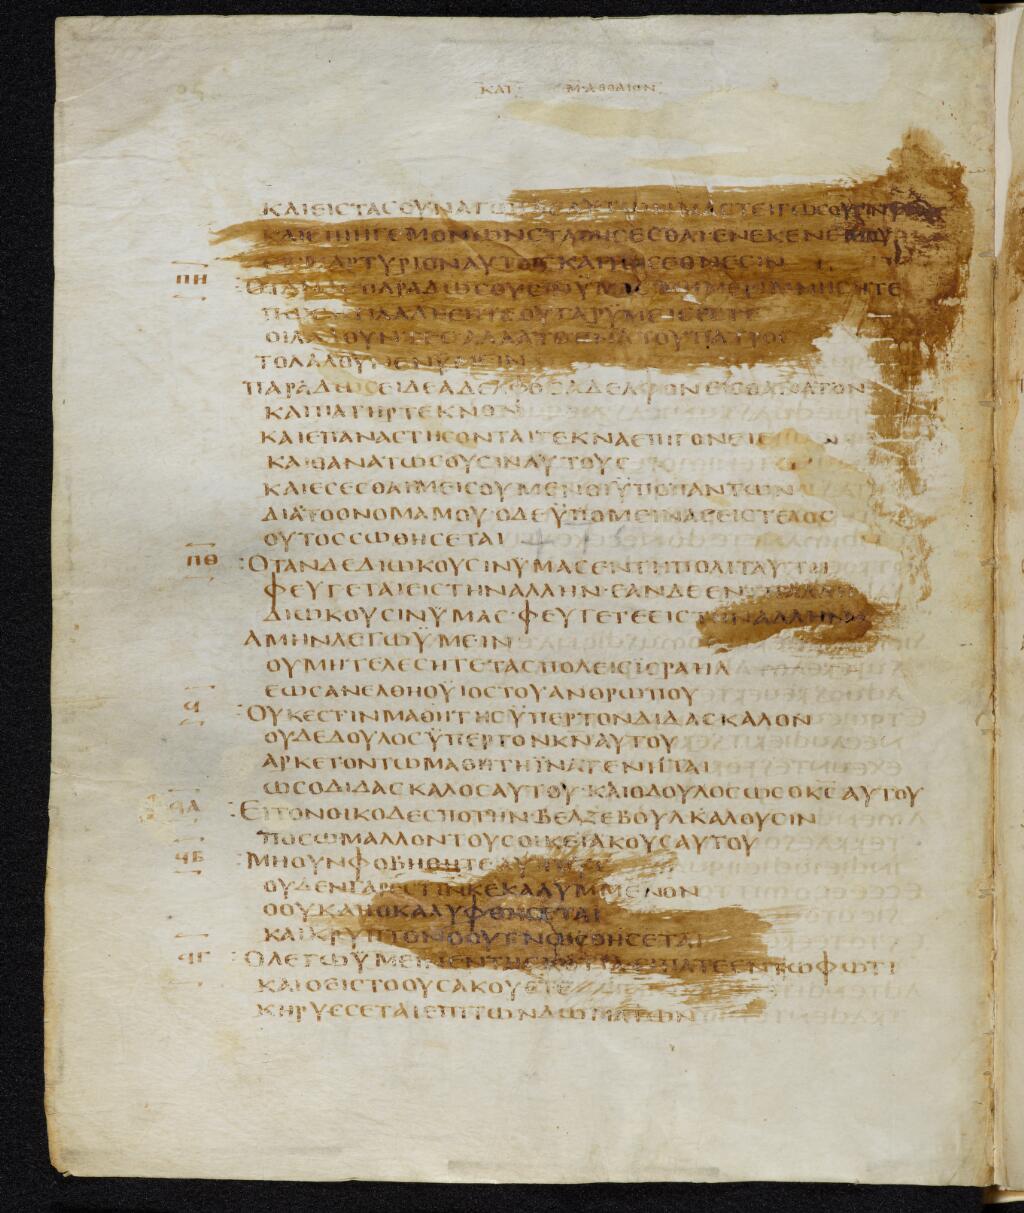 ΚΑΤ ΜΑΘΘΑΙΟΝ
ΚΑΙΕΙCΤΑC ΑΥΤΩΝΜΑCΤΕΙΓΩCΟΥCΙΝ
ΚΑΙΕΠΙΗΓΕΜΟΝΩΝCΤΑΘΗCΕCΘΑΙΕΝΕΚΕΝΕΜΟΥ
ΜΑΡΤΥΡΙΟΝΑΥΤΟΙCΚΑΙΤΟΙCΕΘΝΕCΙΝ
ΠΗ ΟΤΑΝΔΕΠΑΡΑΔΩCΟΥCΙΝΫΜΑCΜΗΜΕΡΙΜΝΗCΗΤΕ
ΠΩC ΛΑΛΗCΗΤΕΟΥΓΑΡΫΜΕΙCΕCΤΕ
ΟΙΛΑΛΟΥΝΤΕCΑΛΛΑΤΟΠΝΑΤΟΥΠΑΤΡΟC
ΤΟΛΑΛΟΥΝΕΝΫΜΕΙΝ
ΠΑΡΑΔΩCΕΙΔΕΑΔΕΛΦΟCΑΔΕΛΦΟΝΕΙCΘΑΝΑΤΟΝ
ΚΑΙΠΑΤΗΡΤΕΚΝΟΝ
ΚΑΙΕΠΑΝΑCΤΗCΟΝΤΑΙΤΕΚΝΑΕΠΙΓΟΝΕΙC
ΚΑΙΘΑΝΑΤΩCΟΥCΙΝΑΥΤΟΥC
ΚΑΙΕCΕCΘΑΙΜΕΙCΟΥΜΕΝΟΙΫΠΟΠΑΝΤΩΝ
ΔΙΑΤΟΟΝΟΜΑΜΟΥ·ΟΔΕΫΠΟΜΕΙΝΑCΕΙCΤΕΛΟC
ΟΥΤΟCCΩΘΗCΕΤΑΙ
ΠΘ :ΟΤΑΝΔΕΔΙΩΚΟΥCΙΝΫΜΑCΕΝΤΗΠΟΛΙΤΑΥΤΗ
ΦΕΥΓΕΤΑΙΕΙCΤΗΝΑΛΛΗΝ·ΕΑΝΔΕΕΝΤΗΑΛΛΗ
ΔΙΩΚΟΥCΙΝΫΜΑC·ΦΕΥΓΕΤΕΕΙCΤΗΝΑΛΛΗΝ
ΑΜΗΝΛΕΓΩΫΜΕΙΝ
ΟΥΜΗΤΕΛΕCΗΤΕΤΑCΠΟΛΕΙCΪCΡΑΗΛ
ΕΩCΑΝΕΛΘΗΟΥΙΟCΤΟΥΑΝΘΡΩΠΟΥ
Ϥ :ΟΥΚΕCΤΙΝΜΑΘΗΤΗCΫΠΕΡΤΟΝΔΙΔΑCΚΑΛΟΝ
ΟΥΔΕΔΟΥΛΟCΫΠΕΡΤΟΝΚΝΑΥΤΟΥ
ΑΡΚΕΤΟΝΤΩΜΑΘΗΤΗΪΝΑΓΕΝΗΤΑΙ
ΩCΟΔΙΔΑCΚΑΛΟCΑΥΤΟΥ·ΚΑΙΟΔΟΥΛΟCΩCΟΚCΑΥΤΟΥ
ϤΑ :ΕΙΤΟΝΟΙΚΟΔΕCΠΟΤΗΝ·ΒΕΛΖΕΒΟΥΛΚΑΛΟΥCΙΝ
ΠΟCΩΜΑΛΛΟΝΤΟΥCΟΙΚΕΙΑΚΟΥCΑΥΤΟΥ
ϤΒ :ΜΗΟΥΝΦΟΒΗΘΗΤΕΑΥΤΟΥC
ΟΥΔΕΝΓΑΡΕCΤΙΝΚΕΚΑΛΥΜΜΕΝΟΝ
ΟΟΥΚΑΠΟΚΑΛΥΦΘΗCΕΤΑΙ
ΚΑΙΚΡΥΠΤΟΝΟΟΥΓΝΩCΘΗCΕΤΑΙ
ϤΓ :ΟΛΕΓΩΫΜΕΙΝΕΝΤΗCΚΟΤΙΑΕΙΠΑΤΕΕΝΤΩΦΩΤΙ
ΚΑΙΟΕΙCΤΟΟΥCΑΚΟΥΕΤΕ
ΚΗΡΥCCΕΤΑΙΕΠΙΤΩΝΔΩΜΑΤΩΝ